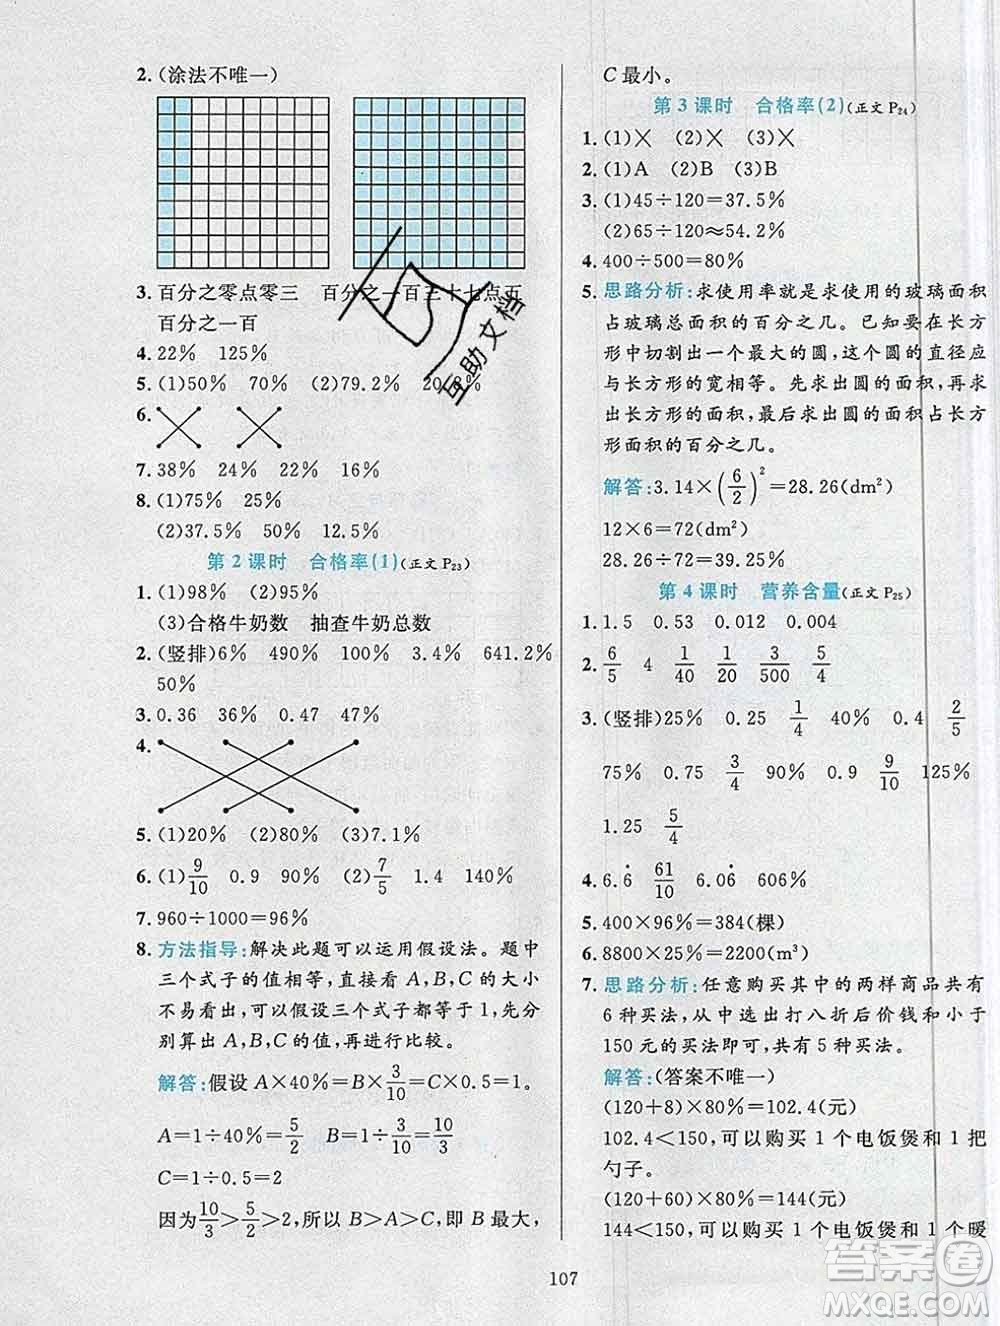 2. (涂法不唯一)
3. 百分之零点零三 百分之一百三十七点五
百分之一百
4. 22% 125%
5. (1)50% 70% (2)79.2%
6.
7. 38% 24% 22% 16%
8. (1)75% 25%
(2)37.5% 50% 12.5%
第 2 课时 合格率(1)(正文 P23)
1. (1)98% (2)95%
(3)合格牛奶数 抽查牛奶总数
2. (竖排)6% 490% 100% 3.4% 641.2%
50%
3. 0.36 36% 0.47 47%
4.
5. (1)20% (2)80% (3)7.1%
6. (1)9/10 0.9 90% (2)7/5 1.4 140%
7. 960÷1000=96%
8. 方法指导:解决此题可以运用假设法。题中
三个式子的值相等,直接看 A,B,C 的大小
不易看出,可以假设三个式子都等于 1,先分
别算出 A,B,C 的值,再进行比较。
解答:假设 A×40%=B×3/10=C×0.5=1。
A=1÷40%=5/2 B=1÷3/10=10/3
C=1÷0.5=2
因为10/3>5/2>2,所以 B>A>C,即 B 最大,
C 最小。
第 3 课时 合格率(2)(正文 P24)
1. (1)× (2)× (3)×
2. (1)A (2)B (3)B
3. (1)45÷120=37.5%
(2)65÷120≈54.2%
4. 400÷500=80%
5. 思路分析:求使用率就是求使用的玻璃面积
占玻璃总面积的百分之几。已知要在长方
形中切割出一个最大的圆,这个圆的直径应
与长方形的宽相等。先求出圆的面积,再求
出长方形的面积,最后求出圆的面积占长方
形面积的百分之几。
解答:3.14×(6/2)²=28.26(dm²)
12×6=72(dm²)
28.26÷72=39.25%
第 4 课时 营养含量(正文 P25)
1. 1.5 0.53 0.012 0.004
2. 6/5 4 1/40 1/20 3/500 5/4
3. (竖排)25% 0.25 1/4 40% 0.4 2/5
75% 0.75 3/4 90% 0.9 9/10 125%
1.25 5/4
4. 6.6̇ 61/10 6.06̇ 606%
5. 400×96%=384(棵)
6. 8800×25%=2200(m³)
7. 思路分析:任意购买其中的两样商品共有
6 种买法,从中选出打八折后价钱和小于
150 元的买法即可,共有 5 种买法。
解答:(答案不唯一)
(120+8)×80%=102.4(元)
102.4<150,可以购买 1 个电饭煲和 1 把
勺子。
(120+60)×80%=144(元)
144<150,可以购买 1 个电饭煲和 1 个暖
107
互助文档
答案圈
MXQE.COM